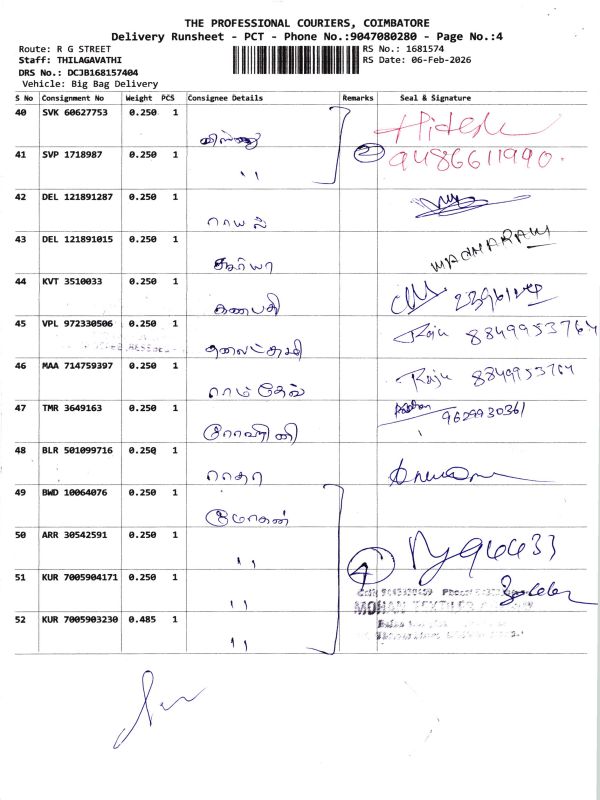 THE PROFESSIONAL COURIERS, COIMBATORE
Delivery Runsheet - PCT - Phone No.:9047080280 - Page No.:4
Route: R G STREET
RS No.: 1681574
Staff: THILAGAVATHI
RS Date: 06-Feb-2026
DRS No.: DCJB168157404
Vehicle: Big Bag Delivery
S No Consignment No Weight PCS Consignee Details Remarks Seal & Signature
40 SVK 60627753 0.250 1 Hitesh
41 SVP 1718987 0.250 1 " 2 9486611990.
42 DEL 121891287 0.250 1 ராயல்
43 DEL 121891015 0.250 1 சூர்யா
44 KVT 3510033 0.250 1 கணபதி
45 VPL 972330506 0.250 1 Raju 8849953764
46 MAA 714759397 0.250 1 ராம்தேவ் Raju 8849953764
47 TMR 3649163 0.250 1 9629930361
48 BLR 501099716 0.250 1 ராதா
49 BWD 10064076 0.250 1 மோகன்
50 ARR 30542591 0.250 1 " 4
51 KUR 7005904171 0.250 1 "
MOHAN TEXTILES
52 KUR 7005903230 0.485 1 "